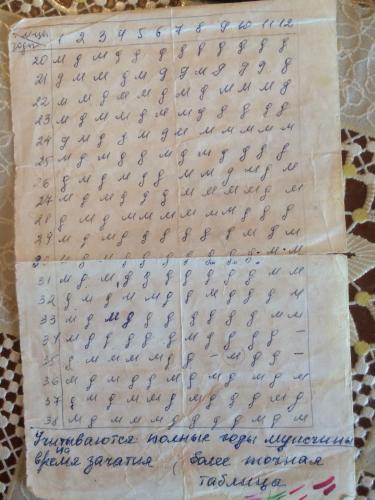 м-цы 1 2 3 4 5 6 7 8 9 10 11 12
годы
20 м д м д д д д д д д д д
21 д м м д м д д м д д д д
22 м м д м м д м д м м м д
23 м д м м д м м д д д д д
24 д м д д м д м м м м м м
25 м д м д д м д м д д д д
26 д м д м д д м м д м д м
27 м д м д д д м м м м д м
28 д м д м м м м м м д д д
29 м д м д д д д д д м д м
31 м д м д д д д д д д м м
32 д м д м м д д м д д д м
33 м д м д д д д д д д м м
34 м д д д д д м д д д д –
35 д м м м м д д – м д д –
36 м д м д д м д м д м д м
37 д м д м м д м д д д м д
38 м д м м м д д д д м д м
Учитываются полные годы мужчины
на
время зачатия ( более точная
таблица